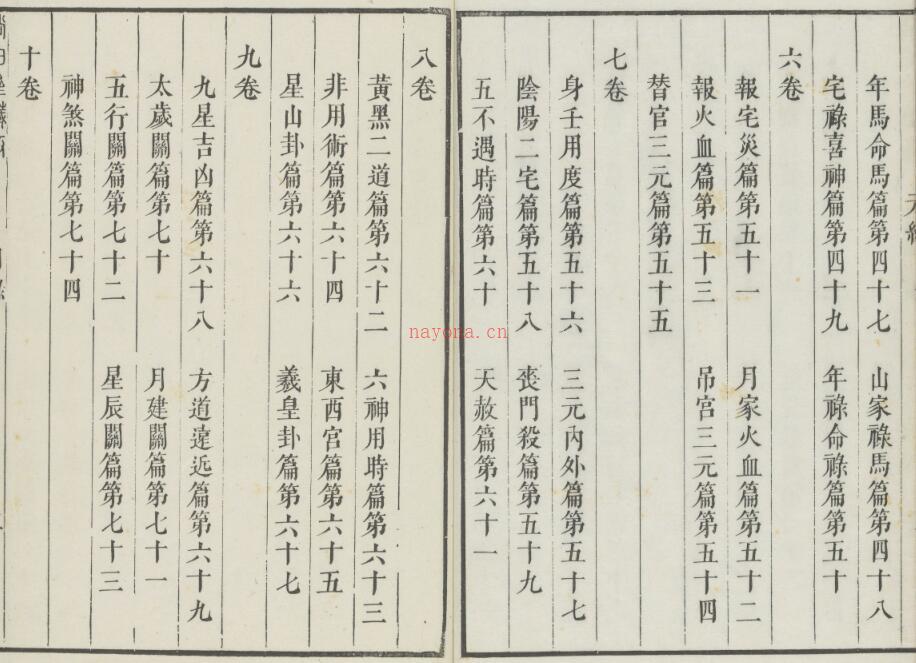 年馬命馬篇第四十七　山家祿馬篇第四十八
宅祿喜神篇第四十九　年祿命祿篇第五十
六卷
報宅災篇第五十一　月家火血篇第五十二
報火血篇第五十三　吊宮三元篇第五十四
替官三元篇第五十五
七卷
身壬用度篇第五十六　三元內外篇第五十七
陰陽二宅篇第五十八　喪門殺篇第五十九
五不遇時篇第六十　天赦篇第六十一
八卷
黃黑二道篇第六十二　六神用時篇第六十三
非用術篇第六十四　東西宮篇第六十五
星山卦篇第六十六　羲皇卦篇第六十七
九卷
九星吉凶篇第六十八　方道遠近篇第六十九
太歲關篇第七十　月建關篇第七十一
五行關篇第七十二　星辰關篇第七十三
神煞關篇第七十四
十卷
nayona.cn